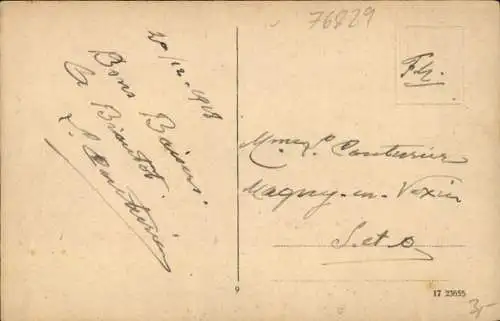 76829
20/12.1918
Bons Baisers.
a Bientot.
L. Couturier
F.M.
Mme P. Couturier
Magny-en-Vexin
S. et O.
9
17 23655
3,-